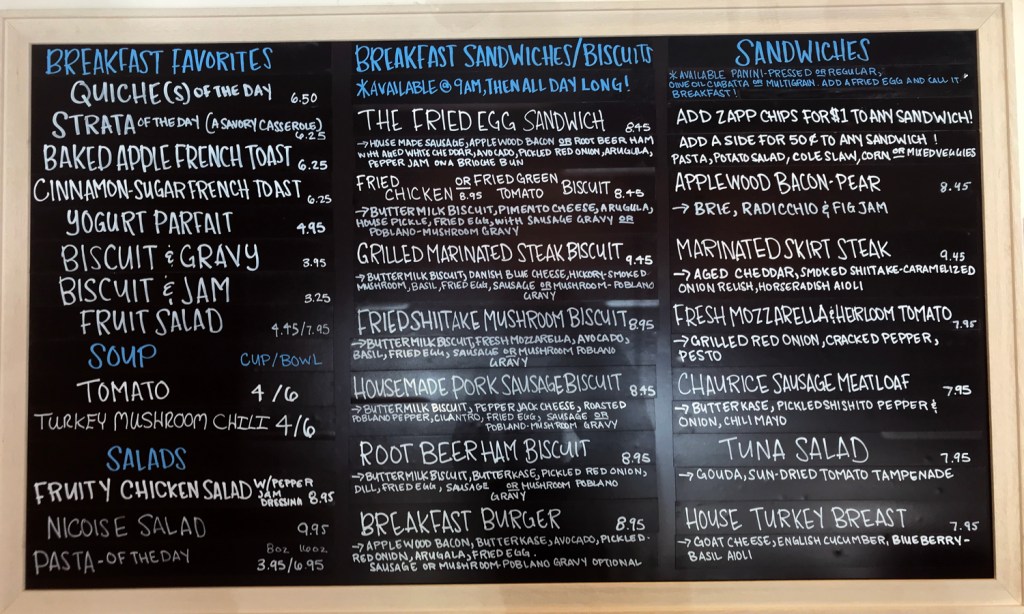 BREAKFAST FAVORITES
QUICHE(S) OF THE DAY 6.50
STRATA OF THE DAY (A SAVORY CASSEROLE) 6.25
BAKED APPLE FRENCH TOAST 6.25
CINNAMON-SUGAR FRENCH TOAST 6.25
YOGURT PARFAIT 4.95
BISCUIT & GRAVY 3.95
BISCUIT & JAM 3.25
FRUIT SALAD 4.45/7.95
SOUP CUP/BOWL
TOMATO 4/6
TURKEY MUSHROOM CHILI 4/6
SALADS
FRUITY CHICKEN SALAD W/PEPPER JAM DRESSING 8.95
NICOISE SALAD 9.95
8oz 16oz
PASTA-OF THE DAY 3.95/6.95
BREAKFAST SANDWICHES/BISCUITS
*AVAILABLE @ 9AM, THEN ALL DAY LONG!
THE FRIED EGG SANDWICH 8.45
→HOUSE MADE SAUSAGE, APPLEWOOD BACON OR ROOT BEER HAM
WITH AGED WHITE CHEDDAR, AVOCADO, PICKLED RED ONION, ARUGULA,
PEPPER JAM ON A BRIOCHE BUN
FRIED CHICKEN 8.95 OR FRIED GREEN TOMATO BISCUIT 8.45
→BUTTERMILK BISCUIT, PIMENTO CHEESE, ARUGULA,
HOUSE PICKLE, FRIED EGG, WITH SAUSAGE GRAVY OR
POBLANO-MUSHROOM GRAVY
GRILLED MARINATED STEAK BISCUIT 9.45
→BUTTERMILK BISCUIT, DANISH BLUE CHEESE, HICKORY-SMOKED
MUSHROOM, BASIL, FRIED EGG, SAUSAGE OR MUSHROOM-POBLANO
GRAVY
FRIED SHIITAKE MUSHROOM BISCUIT 8.95
→BUTTERMILK BISCUIT, FRESH MOZZARELLA, AVOCADO,
BASIL, FRIED EGG, SAUSAGE OR MUSHROOM POBLANO
GRAVY
HOUSEMADE PORK SAUSAGE BISCUIT 8.45
→BUTTERMILK BISCUIT, PEPPER JACK CHEESE, ROASTED
POBLANO PEPPER, CILANTRO, FRIED EGG, SAUSAGE OR
POBLANO-MUSHROOM GRAVY
ROOT BEER HAM BISCUIT 8.95
→BUTTERMILK BISCUIT, BUTTERKASE, PICKLED RED ONION,
DILL, FRIED EGG, SAUSAGE OR MUSHROOM POBLANO
GRAVY
BREAKFAST BURGER 8.95
→APPLEWOOD BACON, BUTTERKASE, AVOCADO, PICKLED-
RED ONION, ARUGALA, FRIED EGG.
SAUSAGE OR MUSHROOM-POBLANO GRAVY OPTIONAL
SANDWICHES
*AVAILABLE PANINI-PRESSED OR REGULAR,
OLIVE OIL CIABATTA OR MULTIGRAIN. ADD A FRIED EGG AND CALL IT
BREAKFAST!
ADD ZAPP CHIPS FOR $1 TO ANY SANDWICH!
ADD A SIDE FOR 50¢ TO ANY SANDWICH!
PASTA, POTATO SALAD, COLE SLAW, CORN, OR MIXED VEGGIES
APPLEWOOD BACON-PEAR 8.45
→ BRIE, RADICCHIO & FIG JAM
MARINATED SKIRT STEAK 9.45
→AGED CHEDDAR, SMOKED SHIITAKE-CARAMELIZED
ONION RELISH, HORSERADISH AIOLI
FRESH MOZZARELLA & HEIRLOOM TOMATO 7.95
→GRILLED RED ONION, CRACKED PEPPER,
PESTO
CHAURICE SAUSAGE MEATLOAF 7.95
→BUTTERKASE, PICKLED SHISHITO PEPPER &
ONION, CHILI MAYO
TUNA SALAD 7.95
→GOUDA, SUN-DRIED TOMATO TAMPENADE
HOUSE TURKEY BREAST 7.95
→GOAT CHEESE, ENGLISH CUCUMBER, BLUEBERRY-
BASIL AIOLI